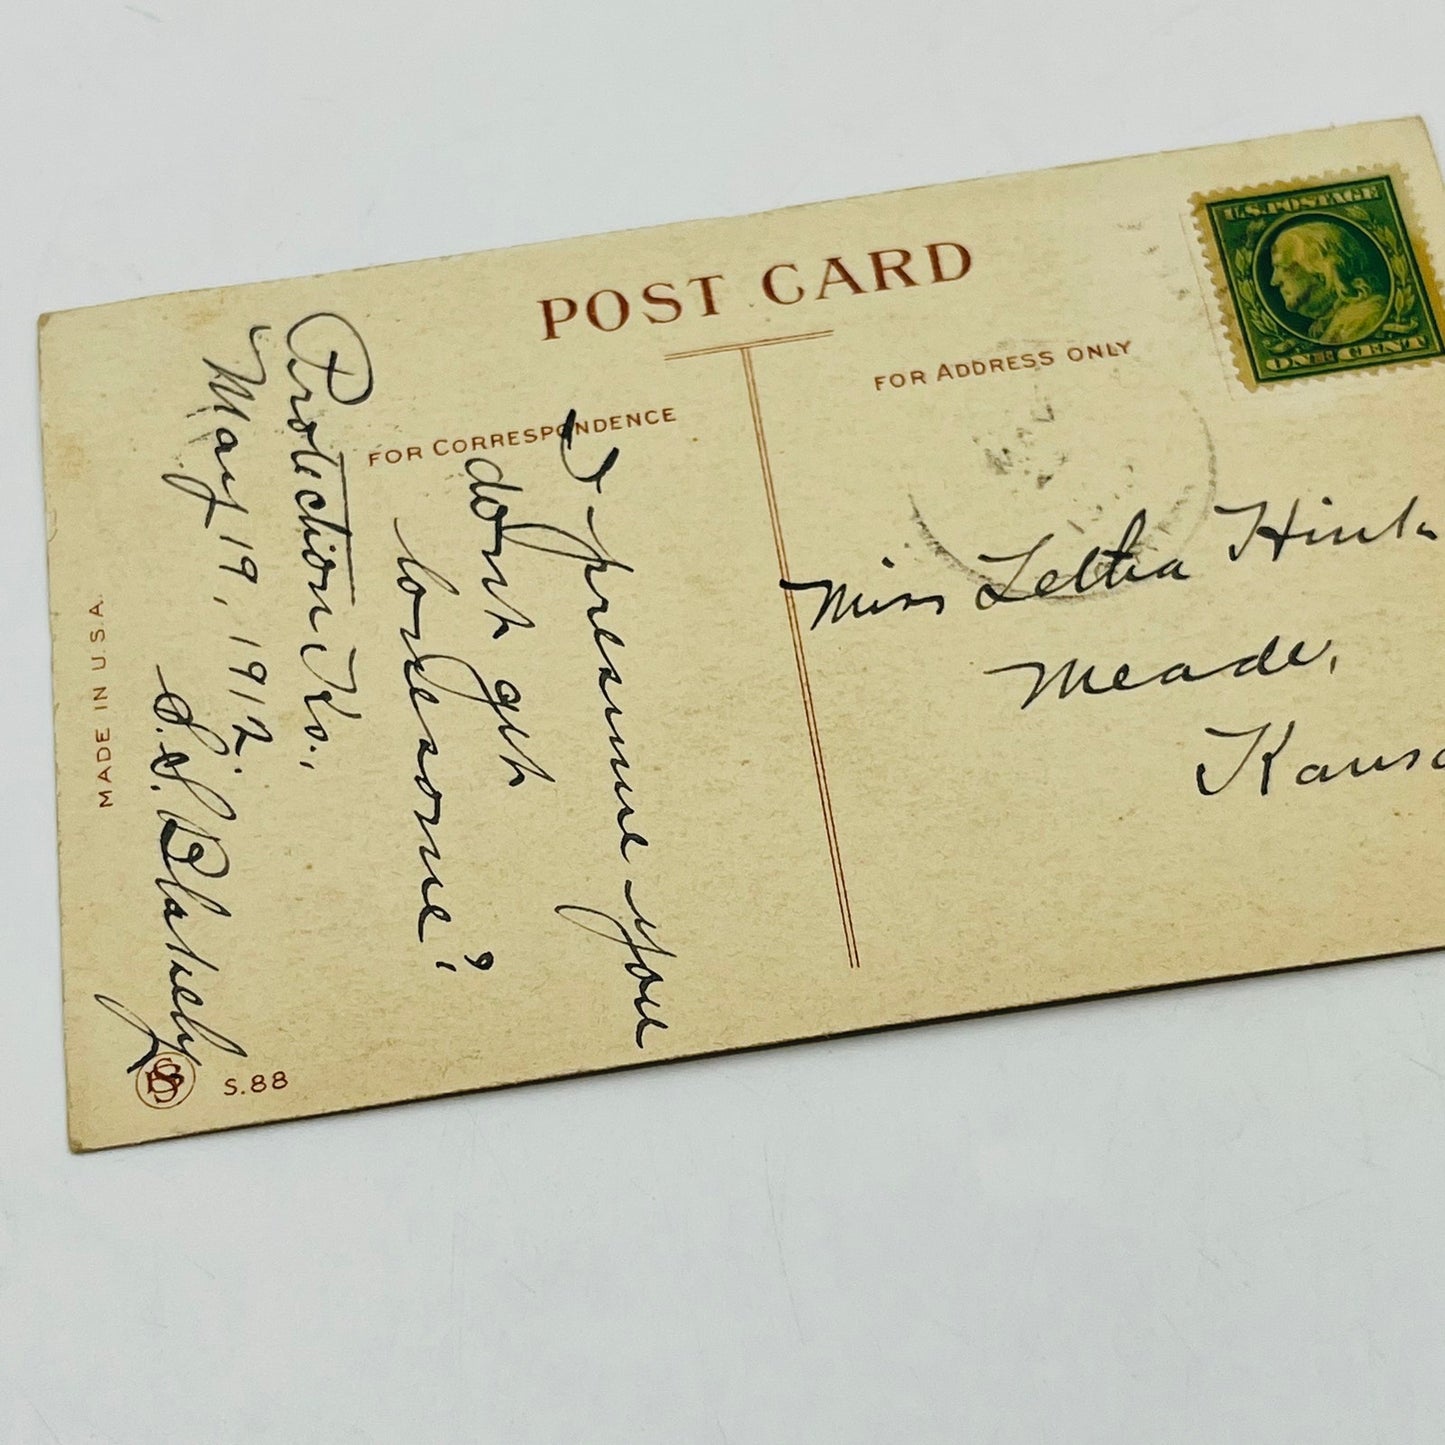 POST CARD
FOR CORRESPONDENCE
FOR ADDRESS ONLY
U.S. POSTAGE
ONE CENT
I presume you
dont get
lonesome?
Protection Ks.,
May 19, 1912.
S. S. Blakely
Miss Letha
Meade,
MADE IN U.S.A.
S.88